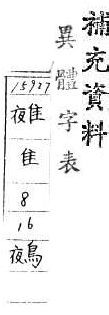 補充資料
異體字表
15927
隹
8
16
鵺